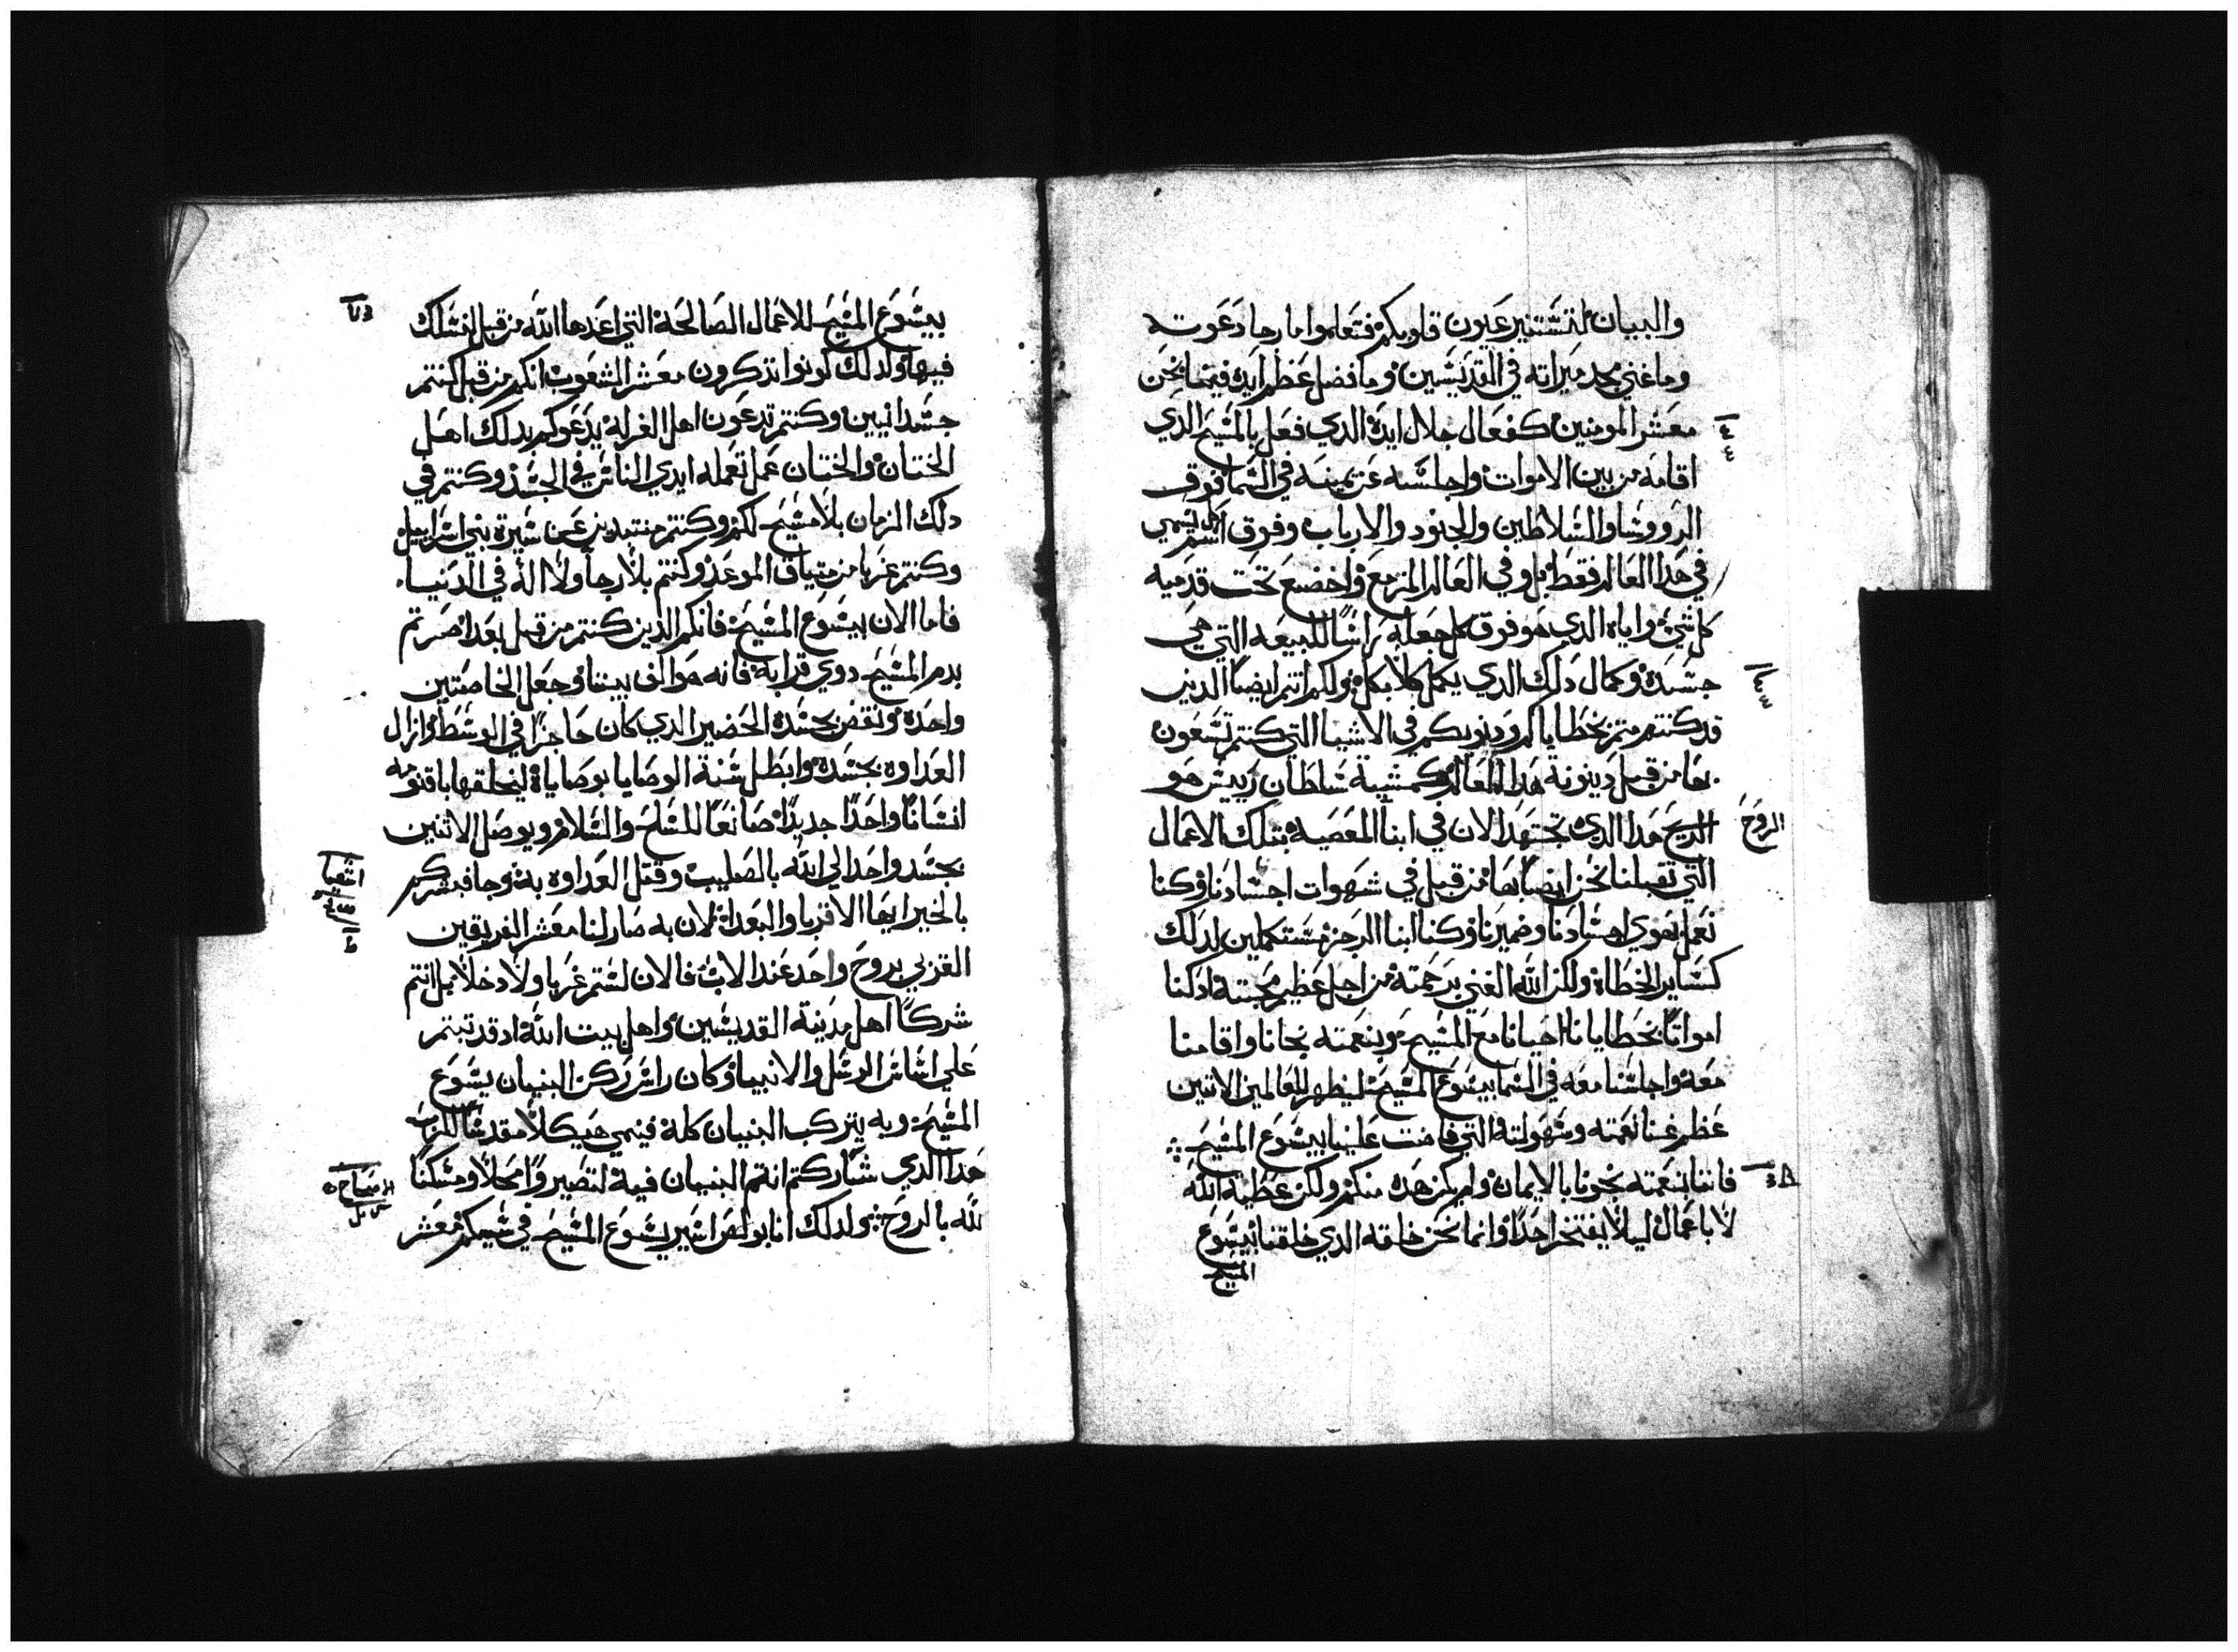 والبيان لتستنير عيون قلوبكم فتعلموا ما رجا دعوته
وما غني مجد ميراته في القديسين وما فضل عظم ايده فيما نحن
معشر المومنين كفعال جلال ايده الدي فعل بالمسيح الدي
اقامه من بين الاموات واجلسه عن يمينه في السما فوق
الرووسا والسلاطين والجنود والارباب وفوق كل اسم يسمي
في هدا العالم فقط بل وفي العالم المزمع واخضع تحت قدميه
كل شي واياه الدي هو فوق كل جعله راسا للبيعه التي هي
جسده وكمال دلك الدي يكمل كلا بكل ولكم انتم ايضا الدين
قد كنتم متم بخطاياكم ودنوبكم في الاشيا التي كنتم تسعون
بها من قبل دينونة هدا العالم وكمشية سلطان رييس هو
الريح هدا الدي تجتهد الان في ابنا المعصية بتلك الاعمال
الروح
التي تقبلنا نحن ايضا بها من قبل في شهوات اجسادنا وكنا
نعمل بهوي اجسادنا وضميرنا وكنا ابنا الرجز مستكملين لدلك
كساير الخطاة ولكن الله الغني برحمته من اجل عظيم محبته ادكنا
امواتا بخطايانا احيانا مع المسيح وبنعمته نجانا واقامنا
معه واجلسنا معه في السما بيسوع المسيح ليظهر للعالمين الاتين
عظم غنا نعمته وسهولته التي فاضت علينا بيسوع المسيح
فاننا بنعمته نجونا بالايمان ولم يكن هده منكم ولكن عطية الله
لا باعمال ليلا يفتخر احدا وانما نحن خلقه الدي خلقنا بيسوع
المسيح
بيسوع المسيح للاعمال الصالحة التي اعدها الله من قبل لنسلك
فيها ولدلك كونوا تدكرون معشر الشعوب انكم من قبل كنتم
جسدانيين وكنتم تدعون اهل الغرلة يدعوكم بدلك اهل
الختان والختان عمل تعمله ايدي الناس في الجسد وكنتم في
دلك الزمان بلا مسيح لكم وكنتم منتبدين عن سيرة بني اسراييل
وكنتم غربا من ميتاق الموعد وكنتم بلا رجا ولا اله في الدنيا
فاما الان بيسوع المسيح فانكم الدين كنتم من قبل بعدا صرتم
بدم المسيح دوي قرابة فانه هو الف بيننا وجعل الخاصتين
واحدة ونقض بجسده الحضير الدي كان حاجزا في الوسط وازال
العداوه بجسده وابطل سنة الوصايا بوصاياة ليخلقها باقنومه
انسانا واحدا جديدا صانعا للسلح والسلام ويوصل الاتنين
بجسد واحد الي الله بالصليب وقتل العداوه به وجا فبشركم
اشعيا
بالخير ايها الاقربا والبعداة لان به صار لنا معشر الفريقين
القربي بروح واحد عند الاب فالان لستم غربا ولا دخلا بل انتم
شركا اهل مدينة القديسين واهل بيت الله اد قد تبتم
علي اساس الرسل والانبيا وكان راس ركن البنيان يسوع
المسيح وبه يتركب البنيان كله فينمي هيكلا مقدسا للرب
هدا الدي شاركتم انتم البنيان فيه لتصيروا محلا ومسكنا
لله بالروح ولدلك انا بولص اسير يسوع المسيح في سببكم معشر